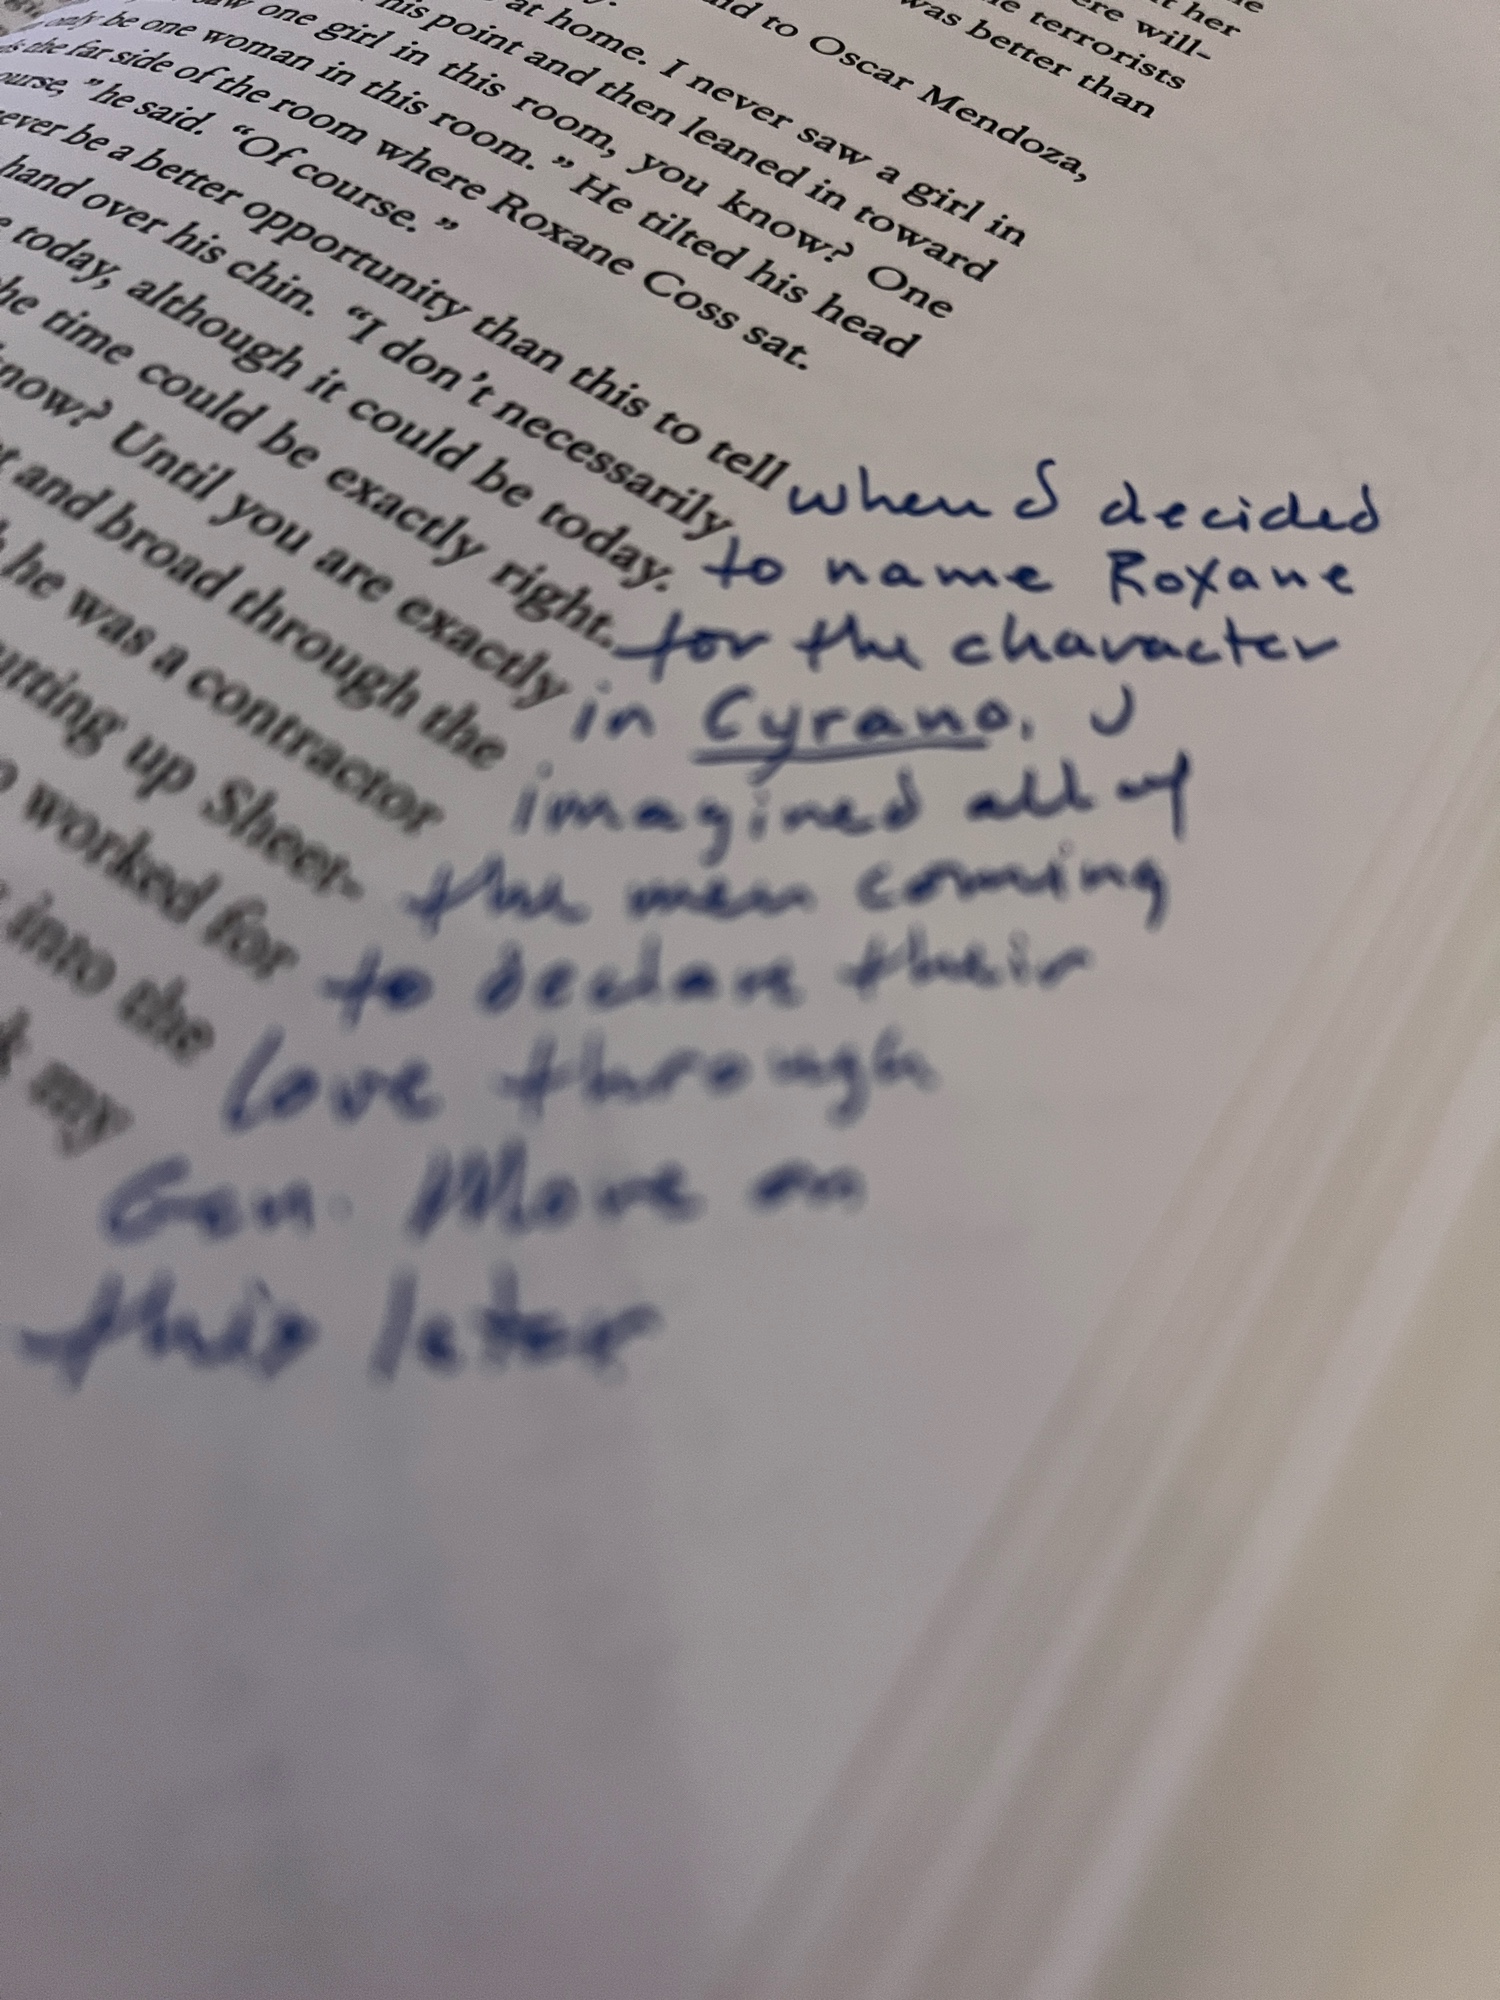 her
ere will-
e terrorists
was better than
to Oscar Mendoza,
at home. I never saw a girl in
his point and then leaned in toward
one girl in this room, you know? One
only be one woman in this room.” He tilted his head
the far side of the room where Roxane Coss sat.
ourse,” he said. “Of course.”
ever be a better opportunity than this to tell
hand over his chin. “I don’t necessarily
today, although it could be today.
the time could be exactly right.
know? Until you are exactly
and broad through the
he was a contractor
utting up Sheet-
worked for
into the
my
when I decided
to name Roxane
for the character
in Cyrano, I
imagined all of
the men coming
to declare their
love through
Gen. More on
this later